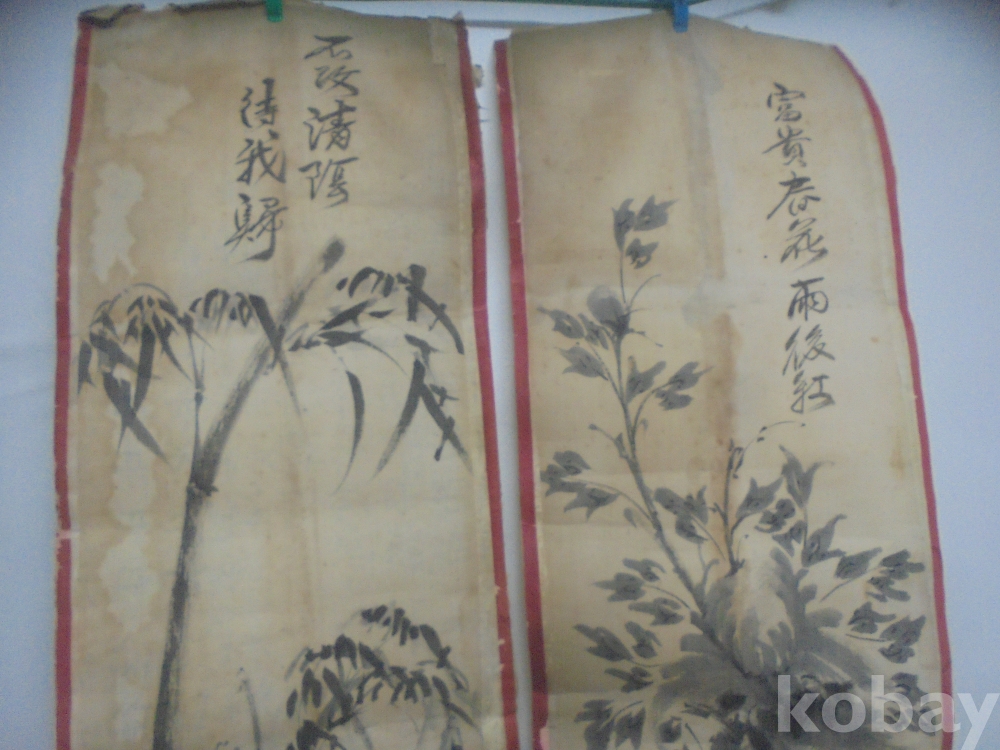 不改清陰
待我歸
富貴春花雨後紅
kobay